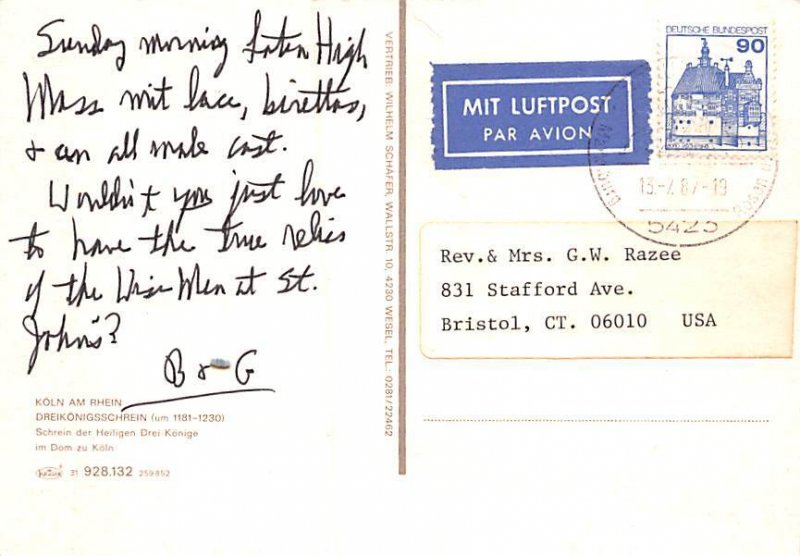 Sunday morning Latin High
Mass mit lace, birettas,
& an all male cast.
Wouldn't you just love
to have the true relics
of the Wise Men at St.
John's?
B & G
KÖLN AM RHEIN
DREIKÖNIGSSCHREIN (um 1181–1230)
Schrein der Heiligen Drei Könige
im Dom zu Köln
31 928.132 259852
VERTRIEB WILHELM SCHÄFER, WALLSTR. 10, 4230 WESEL, TEL.: 0281/22462
MIT LUFTPOST
PAR AVION
DEUTSCHE BUNDESPOST
90
-19
5423
Rev.& Mrs. G.W. Razee
831 Stafford Ave.
Bristol, CT. 06010 USA